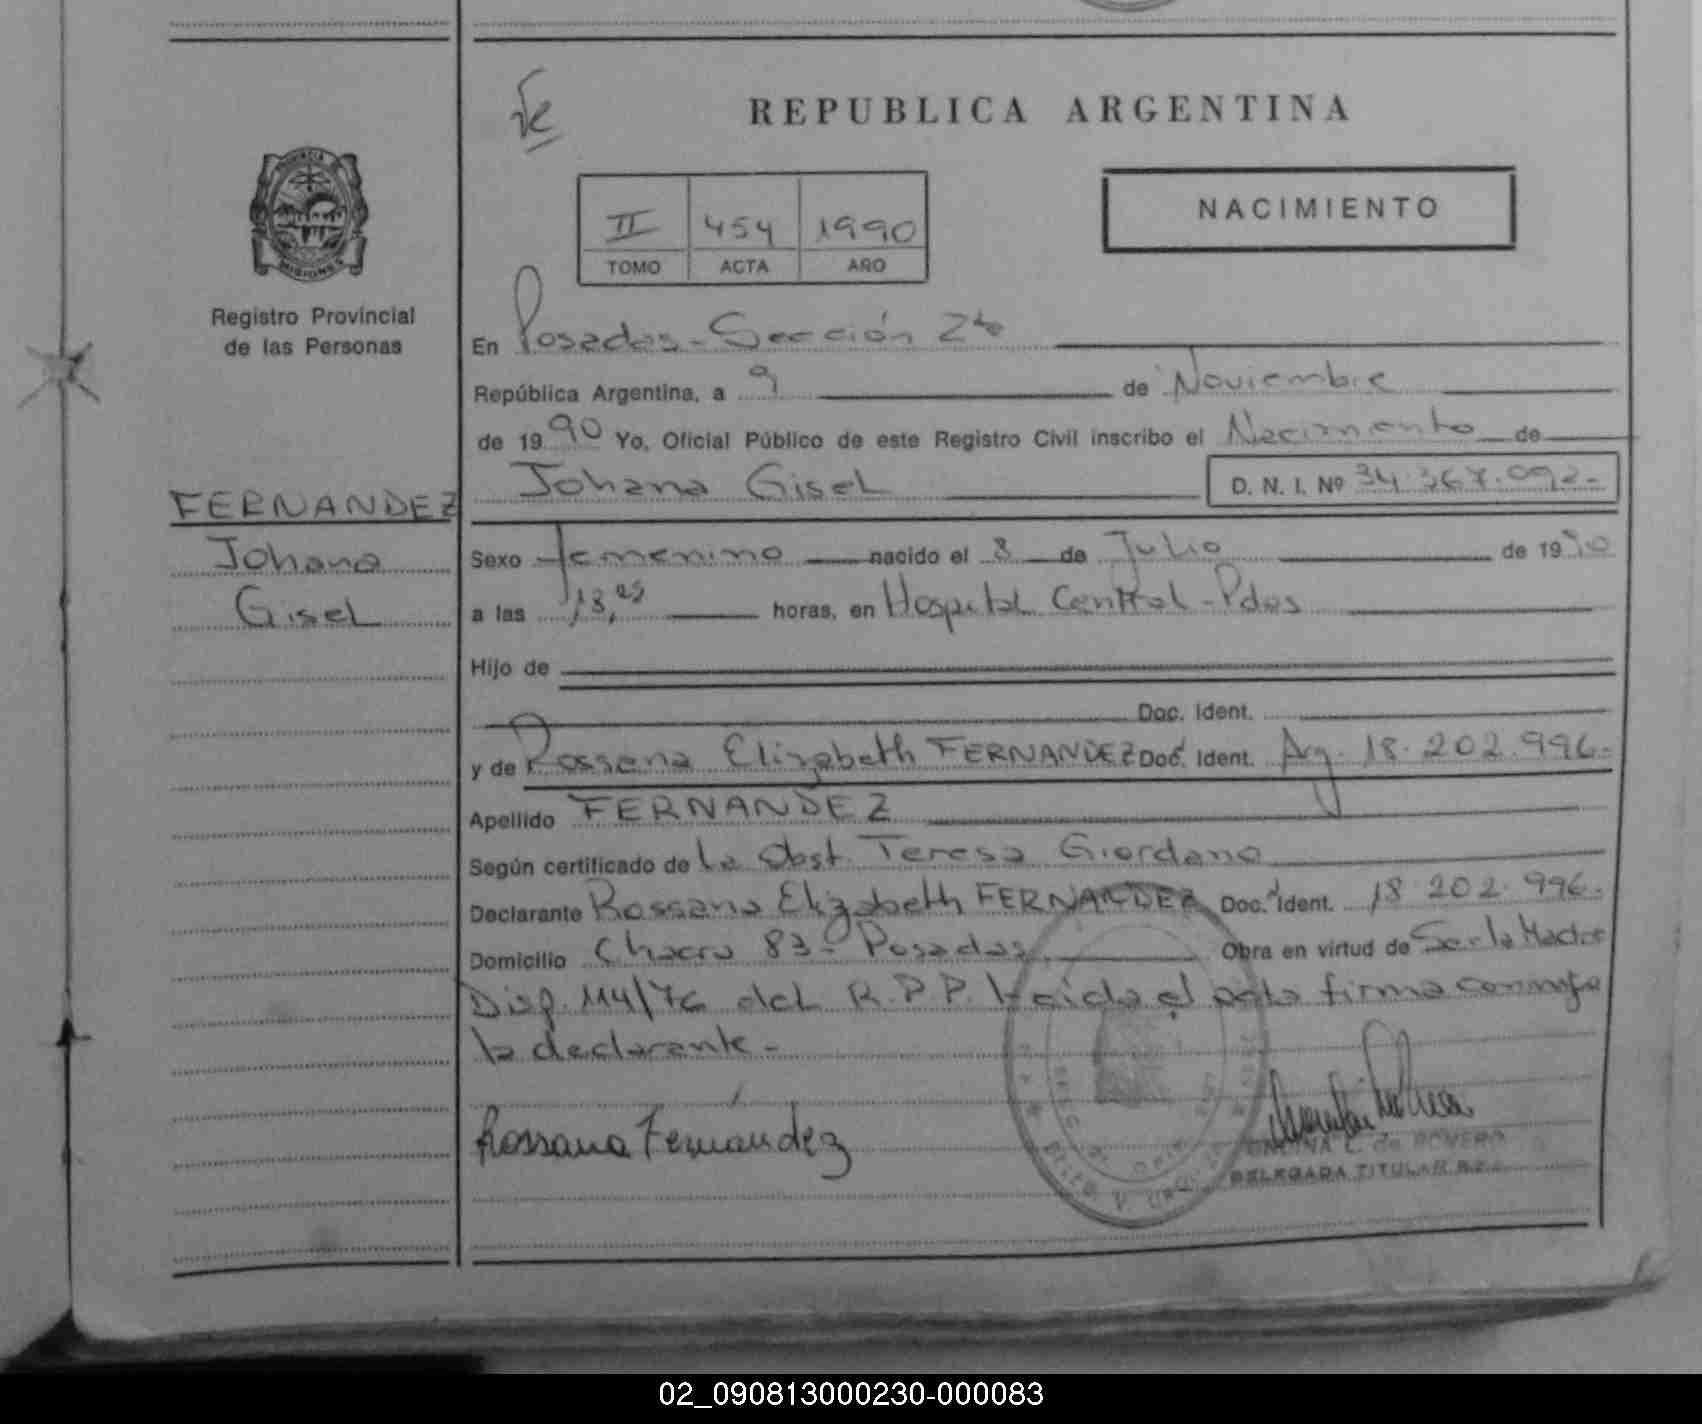 REPUBLICA ARGENTINA
PROVINCIA DE
MISIONES
Registro Provincial
de las Personas
NACIMIENTO
II 454 1990
TOMO ACTA AÑO
En Posadas - Sección 2da
República Argentina, a 9 de Noviembre
de 1990 Yo, Oficial Público de este Registro Civil inscribo el Nacimiento de
Johana Gisel D. N. I. Nº 34.367.092-
FERNANDEZ
Johana
Gisel
Sexo femenino nacido el 8 de Julio de 1990
a las horas, en Hospital Central - Pdas
Hijo de
Doc. Ident.
y de Rossana Elizabeth FERNANDEZ Doc. Ident. Arg. 18.202.996.
Apellido FERNANDEZ
Según certificado de la Obst. Teresa Giordano
Declarante Rossana Elizabeth FERNANDEZ Doc. Ident. 18.202.996.
Domicilio Chacra 83 - Posadas. Obra en virtud de Ser la Madre
Disp. 114/76 del R.P.P. Leida el acta firma conmigo
la declarante -
Rossana Fernández
L. de ROVERO
DELEGADA TITULAR
02_090813000230-000083